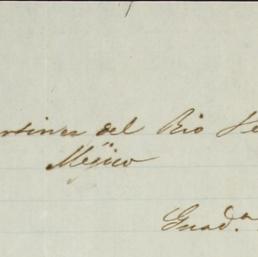 rtinez del Rio He
Mejico
Guad.a